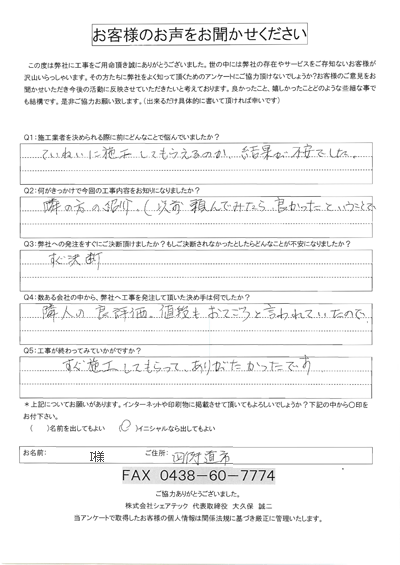 お客様のお声をお聞かせください
この度は弊社に工事をご用命頂き誠にありがとうございました。世の中には弊社の存在やサービスをご存知ないお客様が
沢山いらっしゃいます。その方たちに弊社をよく知って頂くためのアンケートにご協力頂けないでしょうか?お客様のご意見をお
聞かせいただき今後の活動に反映させていただきたいと考えております。良かったこと、嬉しかったことどのような些細な事で
も結構です。是非ご協力お願い致します。(出来るだけ具体的に書いて頂ければ幸いです)
Q1:施工業者を決められる際に前にどんなことで悩んでいましたか?
ていねいに施工してもらえるのか、結果が不安でした。
Q2:何がきっかけで今回の工事内容をお知りになりましたか?
隣の方の紹介。(以前頼んでみたら、良かったということで
Q3:弊社への発注をすぐにご決断頂けましたか?もしご決断されなかったとしたらどんなことが不安になりましたか?
すぐ決断
Q4:数ある会社の中から、弊社へ工事を発注して頂いた決め手は何でしたか?
隣人の良評価。値段もおてごろと言われていたので
Q5:工事が終わってみていかがですか?
すぐ施工してもらって、ありがたかったです
*上記についてお願いがあります。インターネットや印刷物に掲載させて頂いてもよろしいでしょうか?下記の中から○印を
お付下さい。
( )名前を出してもよい (○)イニシャルなら出してもよい
お名前: I様 ご住所: 四街道市
FAX 0438-60-7774
ご協力ありがとうございました。
株式会社シェアテック 代表取締役 大久保 誠二
当アンケートで取得したお客様の個人情報は関係法規に基づき厳正に管理いたします。